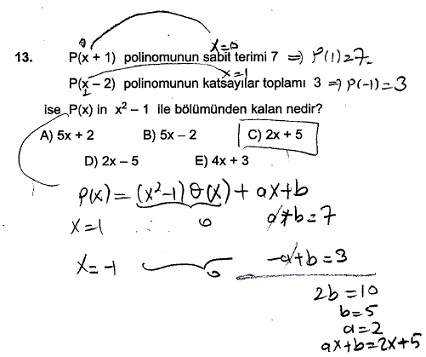 x=0
13. P(x + 1) polinomunun sabit terimi 7 ⇒ P(1)=7
x=1
P(x – 2) polinomunun katsayılar toplamı 3 ⇒ P(-1)=3
ise P(x) in x² – 1 ile bölümünden kalan nedir?
A) 5x + 2 B) 5x – 2 C) 2x + 5
D) 2x – 5 E) 4x + 3
P(x) = (x²-1) θ(x) + ax+b
x=1 0 a+b=7
x=-1 0 -a+b=3
2b=10
b=5
a=2
ax+b=2x+5